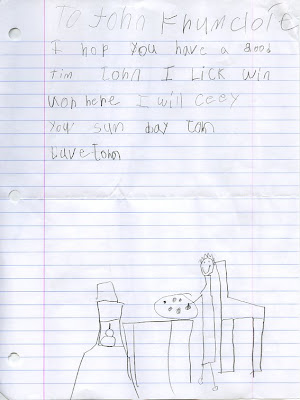 To John
I hop you have a good
tim tohn I Lick win
uon here I will Ceey
you sun day tohn
Luve tohn